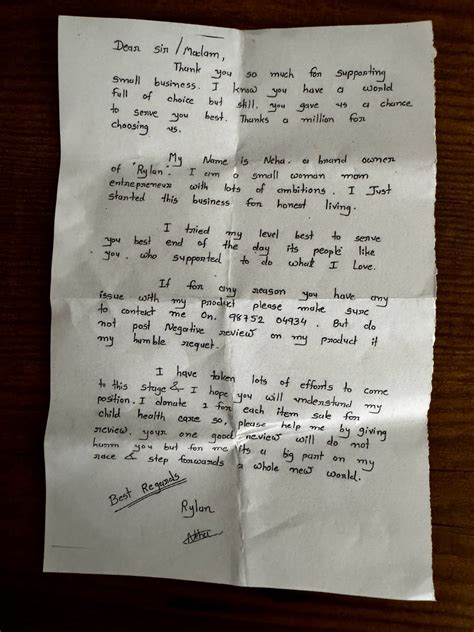 Dear Sir/Madam,
Thank you so much for supporting
small business. I know you have a world
full of choice but still. you gave us a chance
to serve you best. Thanks a million for
choosing us.
My Name is Neha. a brand owner
of "Rylan". I am a small woman mom
entrepreneur with lots of ambitions. I Just
started this business for honest living.
I tried my level best to serve
you best end of the day its people like
you. who supported to do what I Love.
If for any reason you have any
issue with my product please make sure
to contact me on. 98752 04934. But do
not post Negative review on my product it
my humble requet.
I have taken lots of efforts to come
to this stage & I hope you will understand my
position. I donate 2 for each item sale for
child health care so, please help me by giving
review. your one good review will do not
harm you but for me its a big part on my
race & step forwards a whole new world.
Best Regards
Rylan
Neha